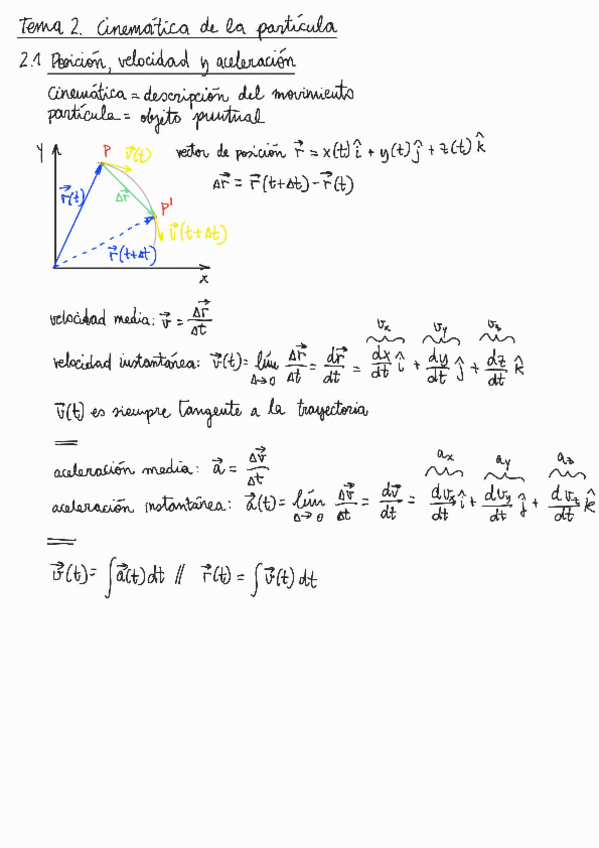 Tema 2. Cinemática de la partícula
2.1 Posición, velocidad y aceleración
Cinemática = descripción del movimiento
partícula = objeto puntual
y P v⃗(t) vector de posición r⃗ = x(t) î + y(t) ĵ + z(t) k̂
r⃗(t) Δr⃗ P' Δr⃗ = r⃗(t+Δt) - r⃗(t)
v⃗(t+Δt)
r⃗(t+Δt)
x
velocidad media: v⃗ = Δr⃗/Δt
vx vy vz
velocidad instantánea: v⃗(t) = lím Δ→0 Δr⃗/Δt = dr⃗/dt = dx/dt î + dy/dt ĵ + dz/dt k̂
v⃗(t) es siempre tangente a la trayectoria
aceleración media: a⃗ = Δv⃗/Δt
ax ay az
aceleración instantánea: a⃗(t) = lím Δ→0 Δv⃗/Δt = dv⃗/dt = dvx/dt î + dvy/dt ĵ + dvz/dt k̂
v⃗(t) = ∫a⃗(t) dt // r⃗(t) = ∫v⃗(t) dt